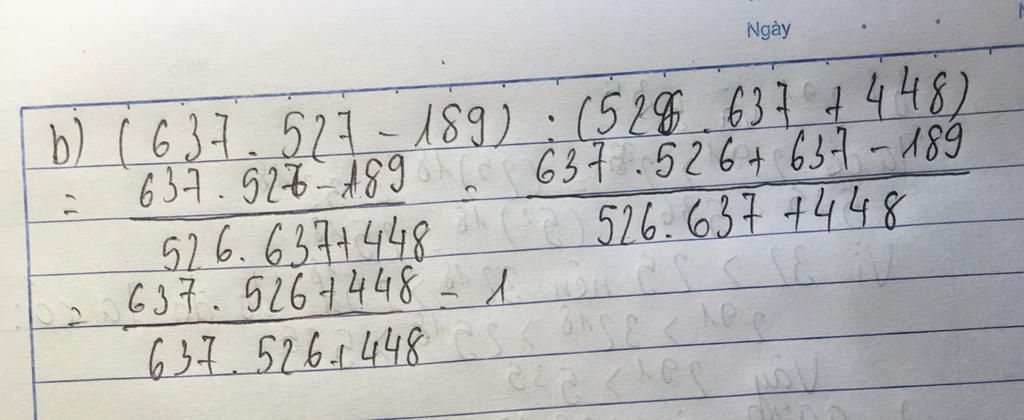 Ngày
b) (637.527-189):(526.637+448)
= 637.527-189 = 637.526+637-189
526.637+448 526.637+448
= 637.526+448 = 1
637.526+448